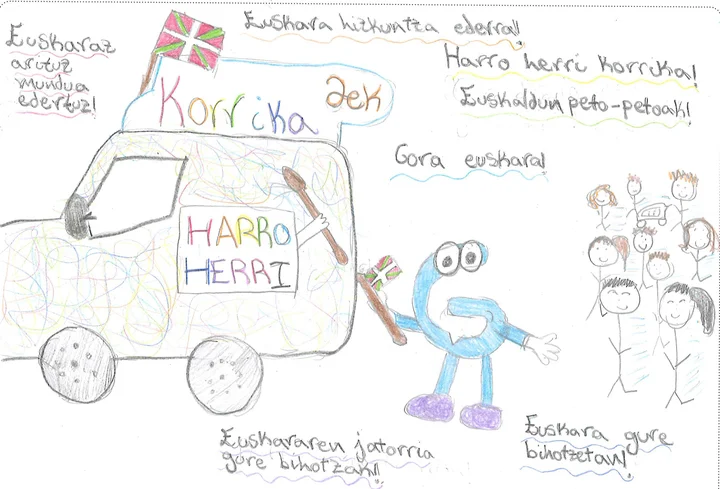 Euskaraz
arituz
mundua
edertuz!
Euskara hizkuntza ederra!
Harro herri korrika!
Euskaldun peto-petoak!
Korrika
aek
Gora euskara!
HARRO
HERRI
Euskararen jatorria
gure bihotzak!
Euskara gure
bihotzetan!